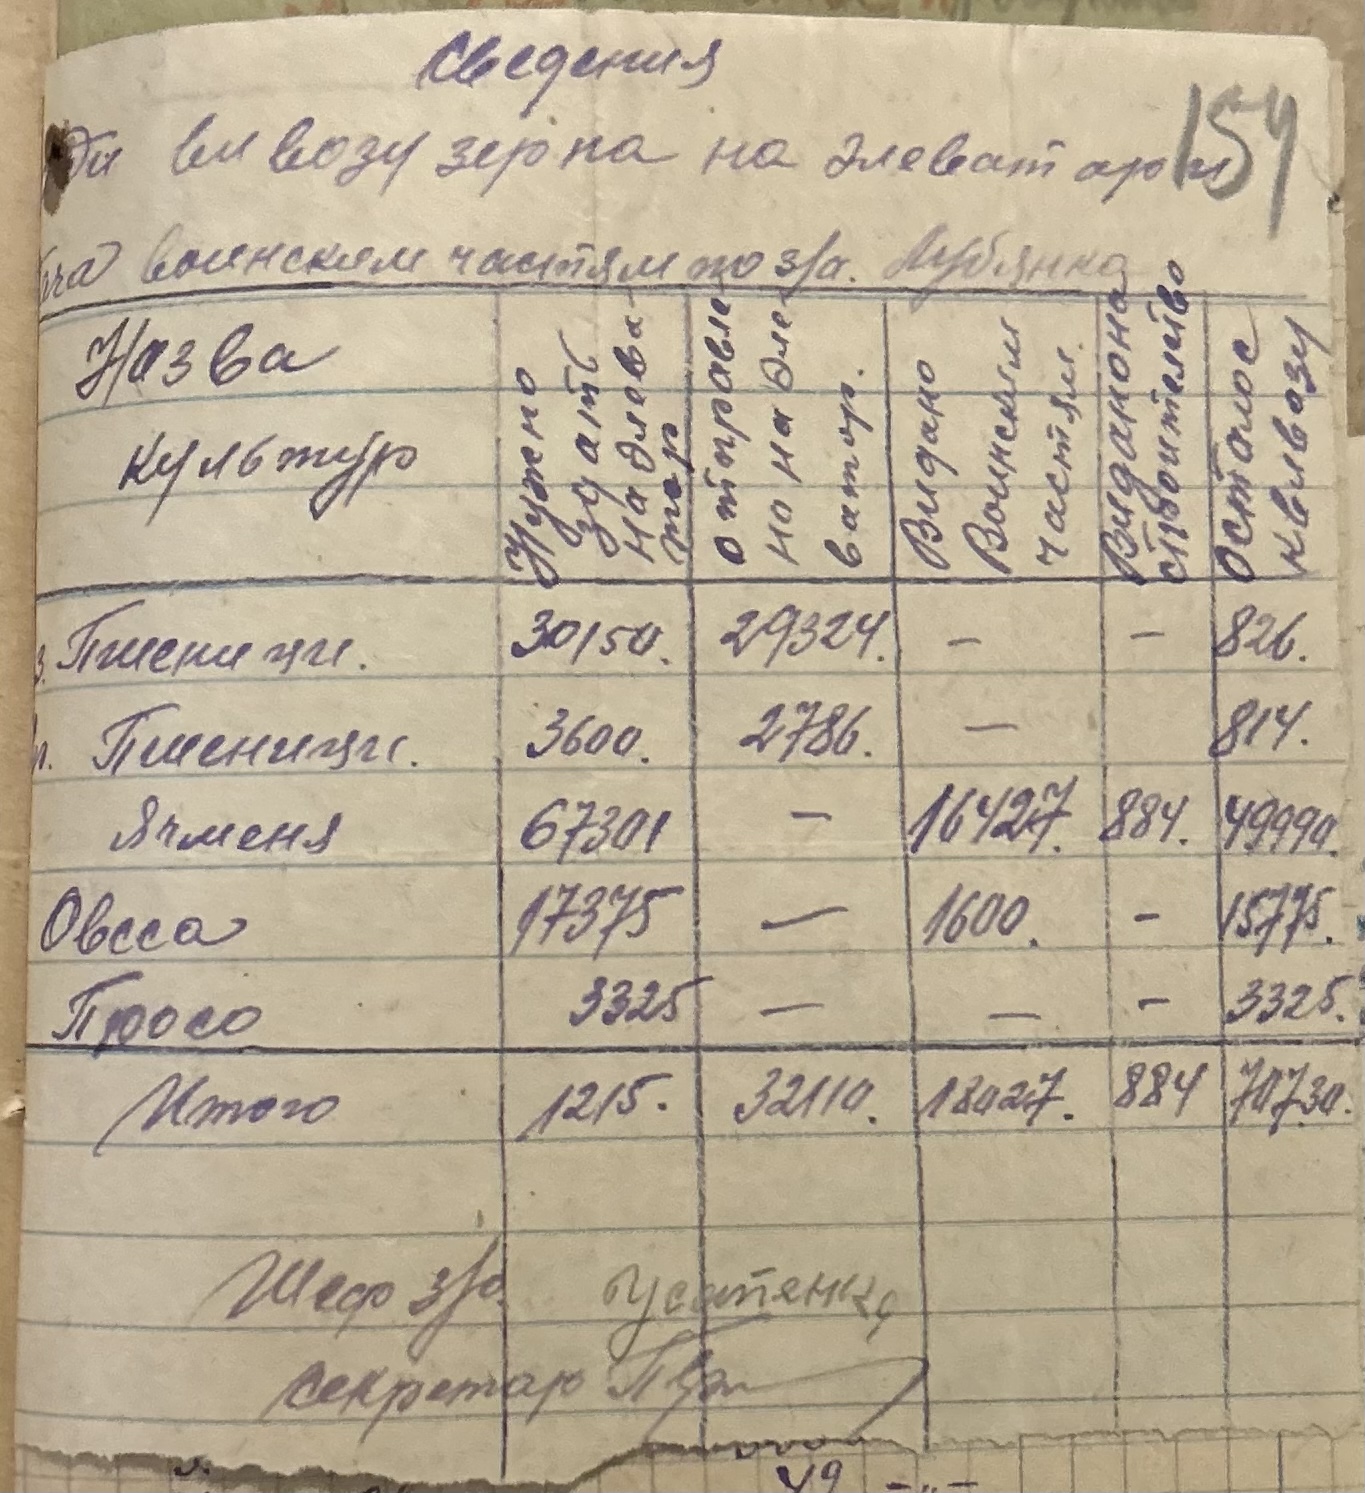 Сведения
154
По вивозу зерна на элеватарои
воинским частям по з/о. Лубянка
Назва культур | Нужно здать на элева-тор | отправле но на эле ватор. | Видано Воинским частям. | Видано на строителство | Осталос к вивозу
з. Пшеници. | 30150. | 29324. | — | — | 826.
Пшеници. | 3600. | 2786. | — | | 814.
Ячменя | 67301 | — | 16427. | 884. | 49990.
Овсса | 17375 | — | 1600. | - | 15775.
Просо | 3325 | — | — | - | 3325.
Итого | 1215. | 32110. | 18027. | 884 | 70730.
Шеф з/о. Усатенко
секретар
49 -„-